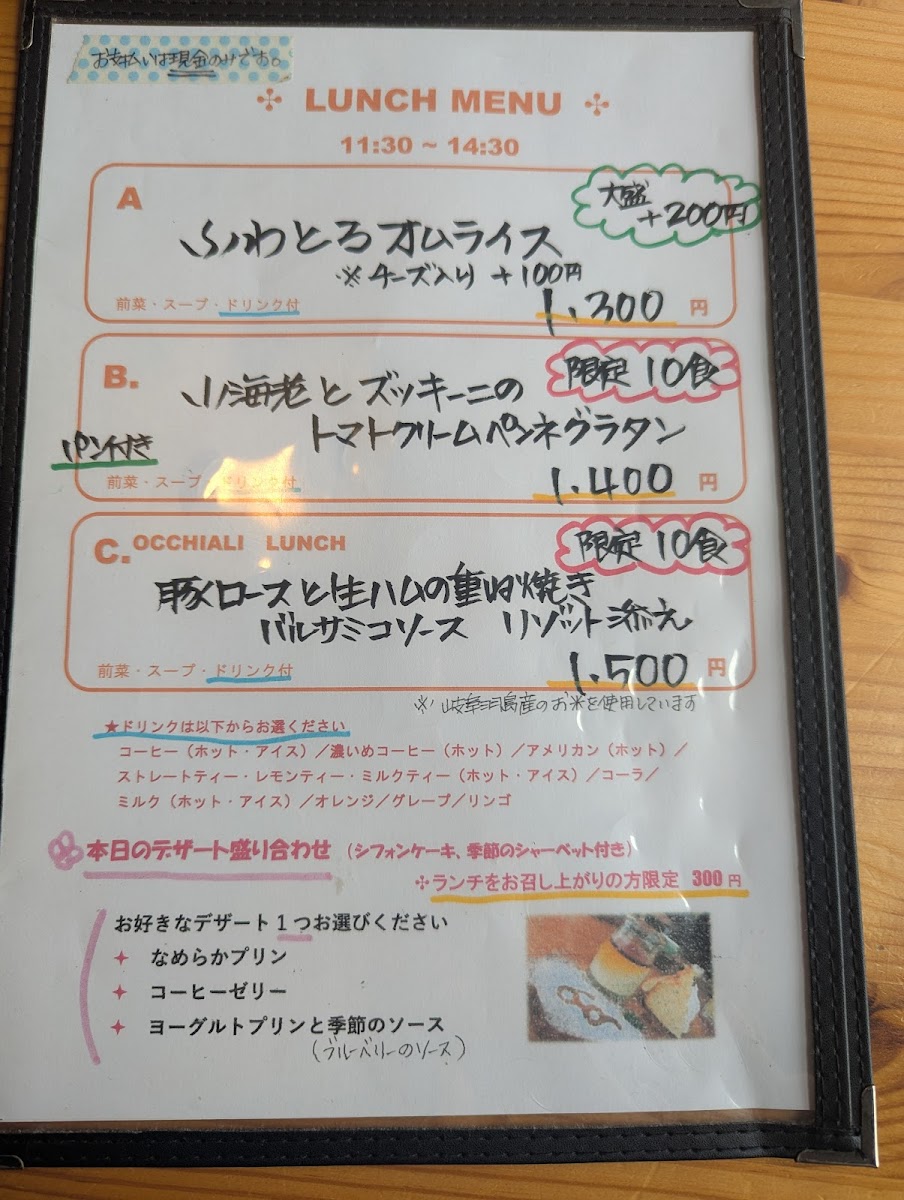 お支払いは現金のみです。
LUNCH MENU
11:30 ~ 14:30
A
大盛
+200円
ふわとろオムライス
※チーズ入り +100円
前菜・スープ・ドリンク付
1,300 円
B.
限定 10食
小海老とズッキーニの
トマトクリームペンネグラタン
パン付き
前菜・スープ・ドリンク付
1,400 円
C. OCCHIALI LUNCH
限定 10食
豚ロースと生ハムの重ね焼き
バルサミコソース リゾット添え
前菜・スープ・ドリンク付
1,500 円
※岐阜羽島産のお米を使用しています
★ドリンクは以下からお選ください
コーヒー（ホット・アイス）／濃いめコーヒー（ホット）／アメリカン（ホット）／
ストレートティー・レモンティー・ミルクティー（ホット・アイス）／コーラ／
ミルク（ホット・アイス）／オレンジ／グレープ／リンゴ
本日のデザート盛り合わせ （シフォンケーキ、季節のシャーベット付き）
ランチをお召し上がりの方限定 300円
お好きなデザート1つお選びください
なめらかプリン
コーヒーゼリー
ヨーグルトプリンと季節のソース
（ブルーベリーのソース）